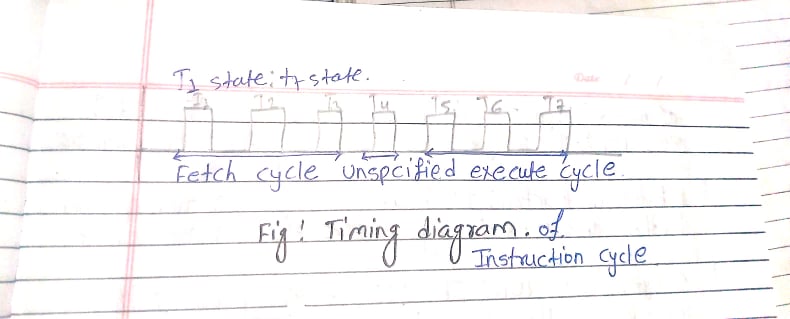 T1 state: t7 state.
Date / /
T1 T2 T3 T4 T5 T6 T7
Fetch cycle unspcified execute cycle
Fig: Timing diagram. of
Instruction cycle